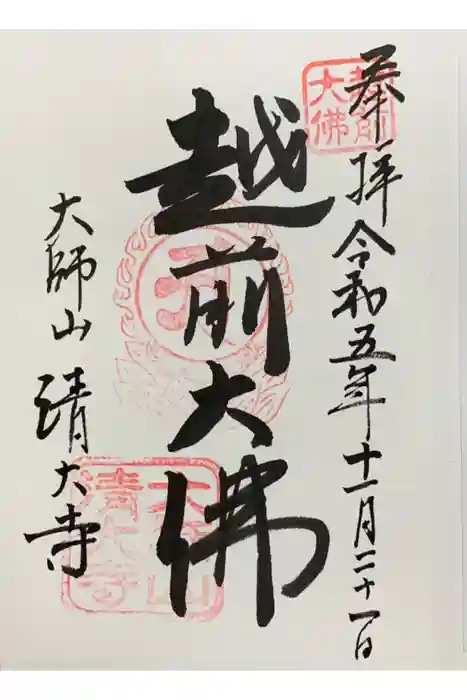 奉拝 令和五年十一月二十一日
越前
大佛
越前大佛
大師山 清大寺
大師山
清大寺